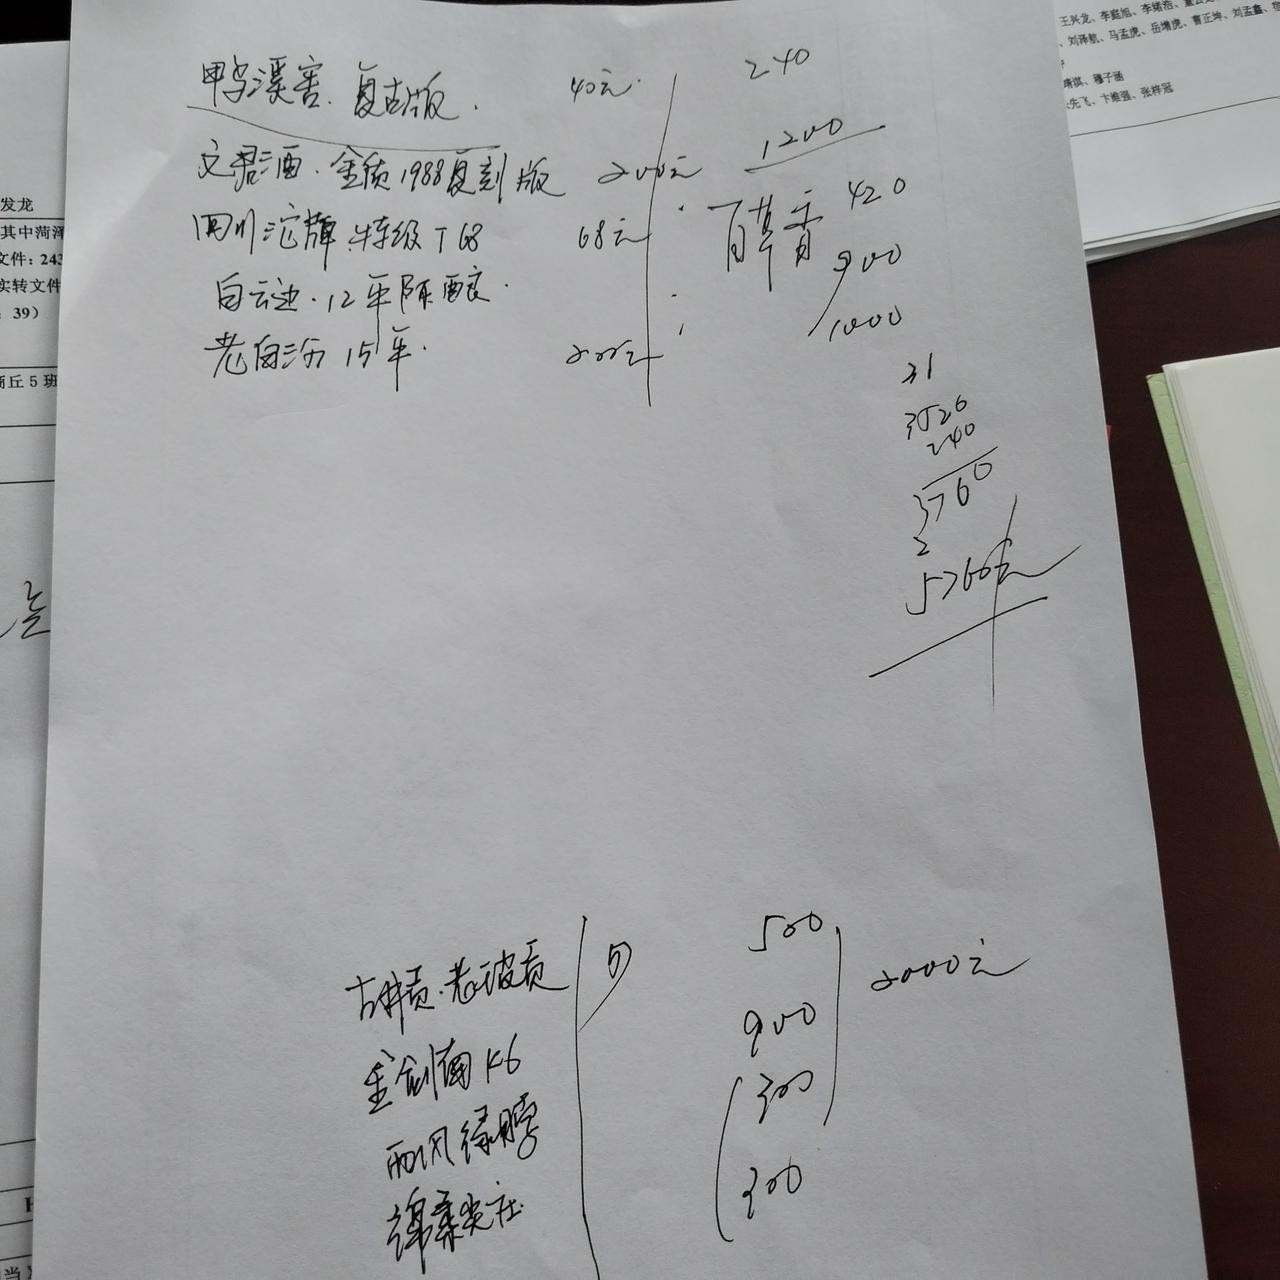 鸭溪窖.复古版. 40元 240
文君酒.金质1988复刻版 200元 1200
四川沱牌.特级T68 68元 420
百草香
白云边.12年陈酿. 900
老白汾15年. 200元 1000
31
3526
240
3760
2
5760元
古井贡.老玻贡 500
2000元
金剑南K6 900
西凤绿脖 300
绵柔尖庄 300
王兴龙、李庭旭、李绪浩、
、刘泽航、马孟虎、岳增虎、曹正坤、刘孟鑫、
靖淇、穆子涵
先飞、卞维强、张梓冠
发龙
其中菏泽
文件：243
实转文件
：39）
商丘5班